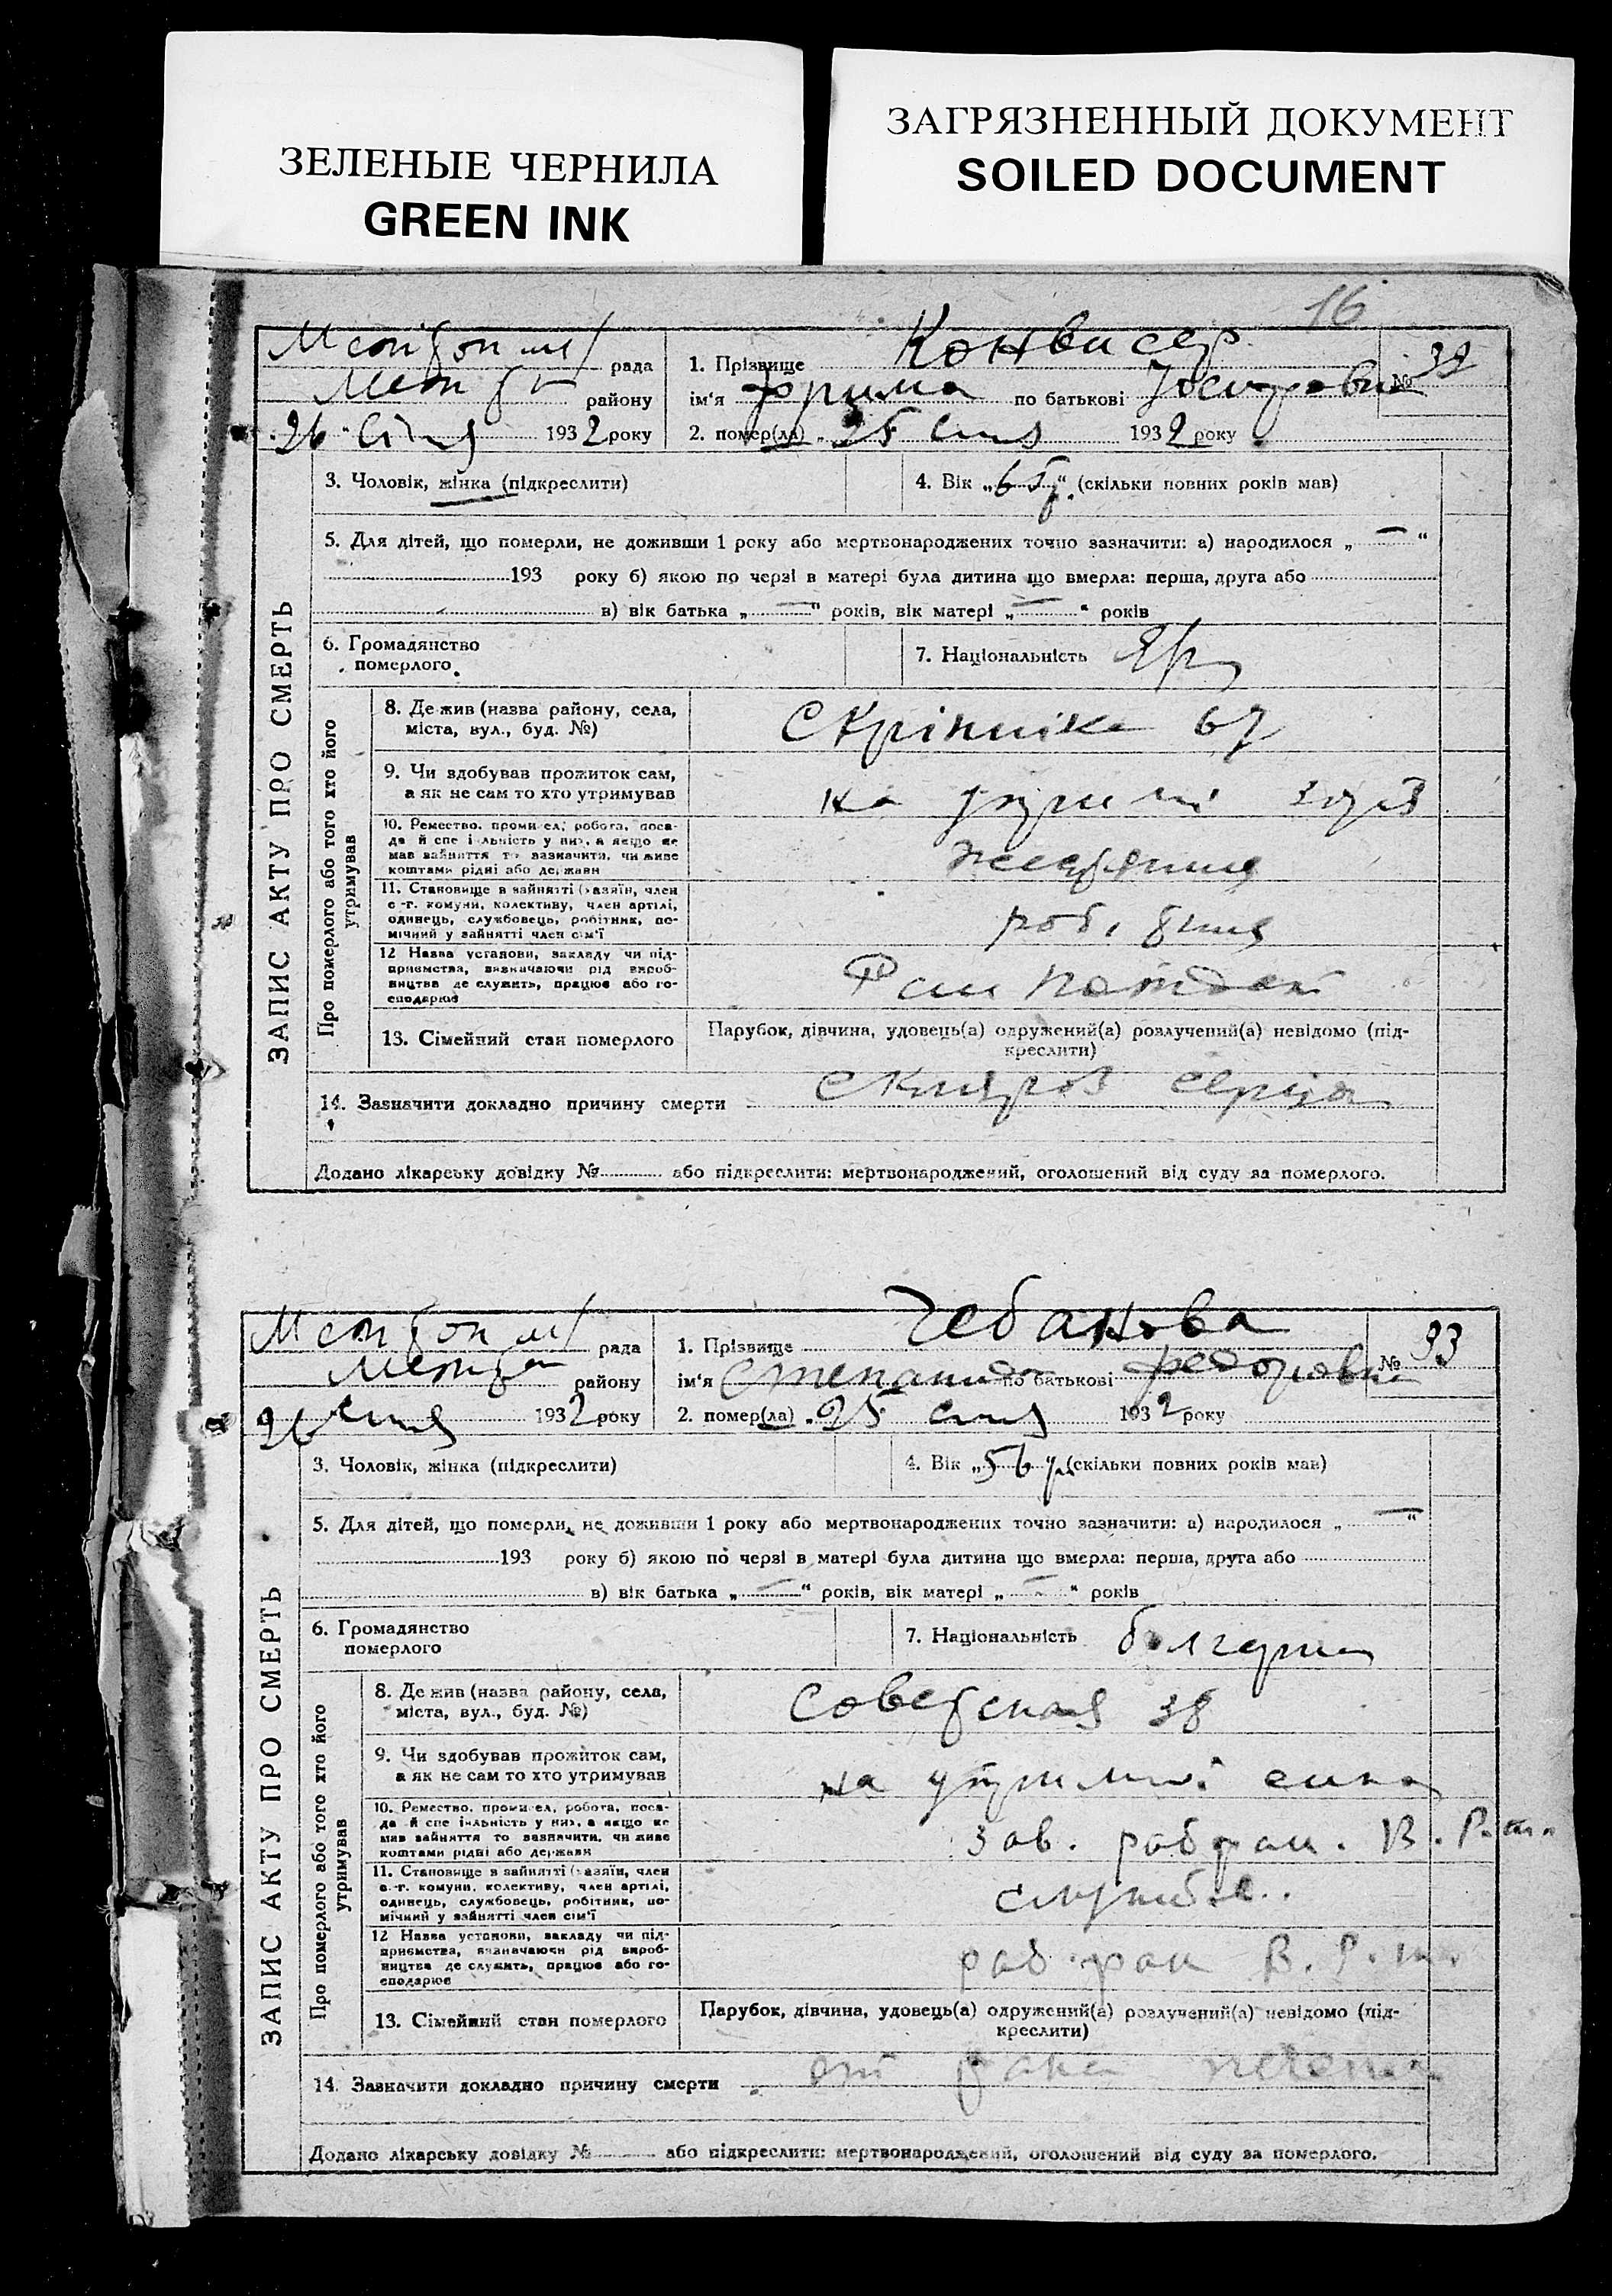 ЗЕЛЕНЫЕ ЧЕРНИЛА
GREEN INK
ЗАГРЯЗНЕННЫЙ ДОКУМЕНТ
SOILED DOCUMENT
16
ЗАПИС АКТУ ПРО СМЕРТЬ
рада
району
26 січня 1932 року
1. Прізвище Конвисер
№ 32
ім'я Фрима по батькові
2. помер(ла) „ 25 січня 1932 року
3. Чоловік, жінка (підкреслити)
4. Вік „65р.“ (скільки повних років мав)
5. Для дітей, що померли, не доживши 1 року або мертвонароджених точно зазначити: а) народилося „ — “
193 року б) якою по черзі в матері була дитина що вмерла: перша, друга або
в) вік батька „ — “ років, вік матері „ — “ років
6. Громадянство
померлого
7. Національність
Про померлого або того хто його
утримував
8. Де жив (назва району, села,
міста, вул., буд. №)
Скрінніка 67
9. Чи здобував прожиток сам,
а як не сам то хто утримував
на утримні
10. Ремество, промисел, робота, поса-
да й спеціяльність у них, а якщо не
мав зайняття то зазначити, чи живе
коштами рідні або держави
11. Становище в зайнятті (хазяїн, член
с.-г. комуни, колективу, член артілі,
одинець, службовець, робітник, по-
мічний у зайнятті член сім'ї
роб.
12 Назва установи, закладу чи під-
приємства, визначаючи рід вироб-
ництва де служить, працює або го-
сподарює
13. Сімейний стан померлого
Парубок, дівчина, удовець(а) одружений(а) розлучений(а) невідомо (під-
креслити)
14. Зазначити докладно причину смерти
серця
Додано лікарську довідку № або підкреслити: мертвонароджений, оголошений від суду за померлого.
ЗАПИС АКТУ ПРО СМЕРТЬ
рада
району
26 січня 1932 року
1. Прізвище Чебанова
№ 33
ім'я Степанида по батькові Федоровна
2. помер(ла) „ 25 січня 1932 року
3. Чоловік, жінка (підкреслити)
4. Вік „56 р. (скільки повних років мав)
5. Для дітей, що померли, не доживши 1 року або мертвонароджених точно зазначити: а) народилося „ — “
193 року б) якою по черзі в матері була дитина що вмерла: перша, друга або
в) вік батька „ — “ років, вік матері „ — “ років
6. Громадянство
померлого
7. Національність болгарка
Про померлого або того хто його
утримував
8. Де жив (назва району, села,
міста, вул., буд. №)
Советская 38
9. Чи здобував прожиток сам,
а як не сам то хто утримував
на утримані сина
10. Ремество, промисел, робота, поса-
да й спеціяльність у них, а якщо не
мав зайняття то зазначити, чи живе
коштами рідні або держави
зав.
11. Становище в зайнятті (хазяїн, член
с.-г. комуни, колективу, член артілі,
одинець, службовець, робітник, по-
мічний у зайнятті член сім'ї
служб.
12 Назва установи, закладу чи під-
приємства, визначаючи рід вироб-
ництва де служить, працює або го-
сподарює
13. Сімейний стан померлого
Парубок, дівчина, удовець(а) одружений(а) розлучений(а) невідомо (під-
креслити)
14. Зазначити докладно причину смерти
от рака печени
Додано лікарську довідку № або підкреслити: мертвонароджений, оголошений від суду за померлого.